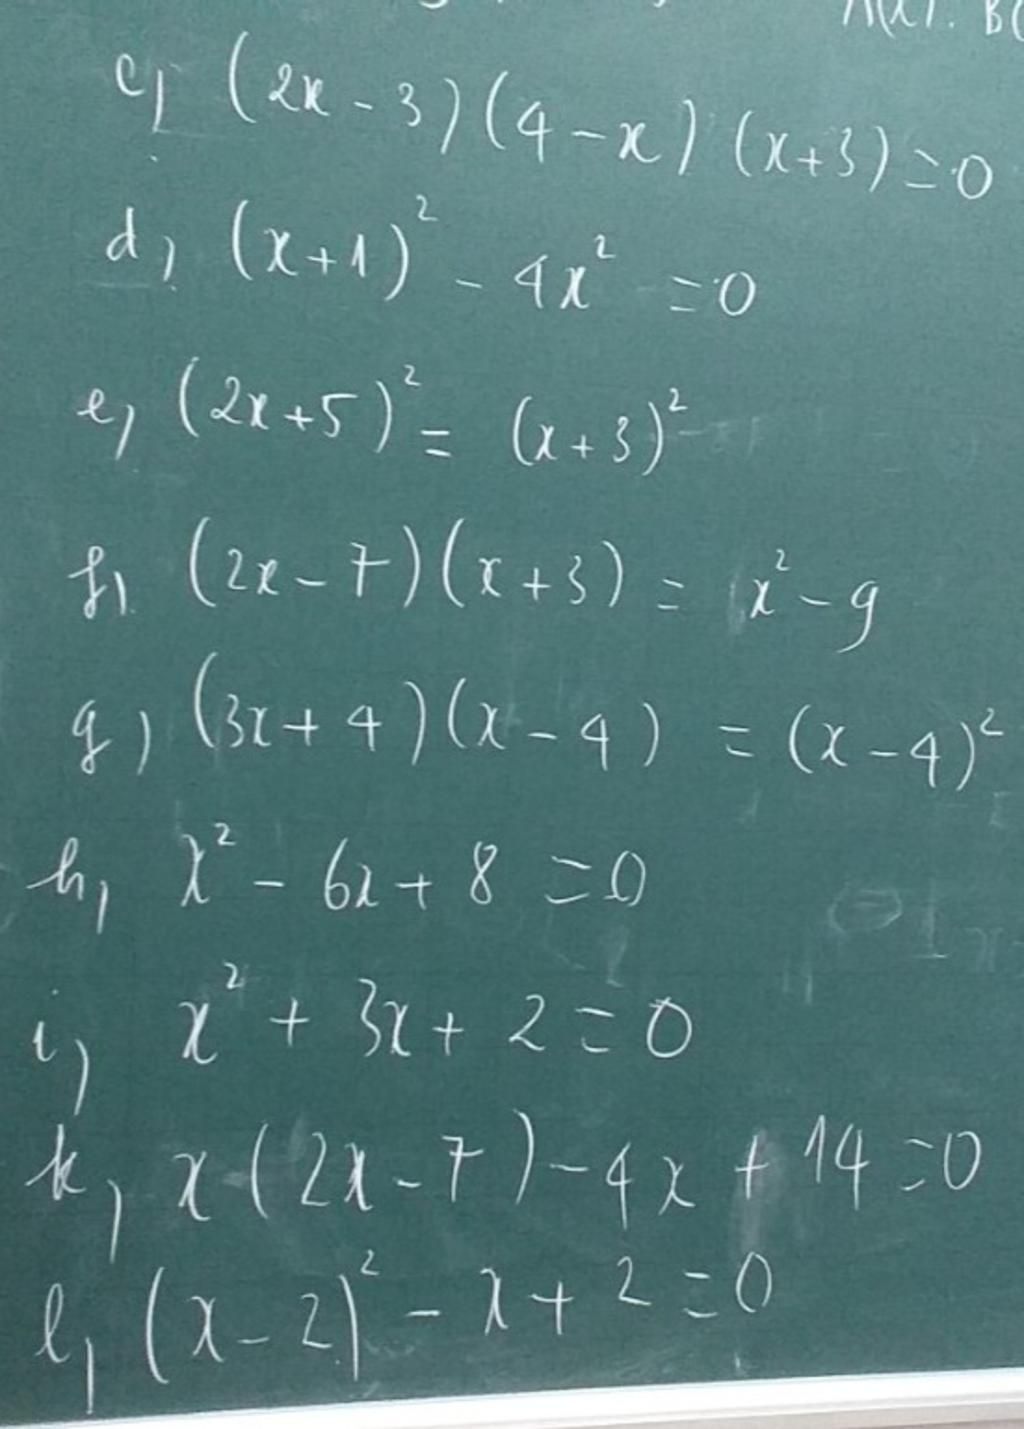 A(x). B(
c) (2x - 3)(4 - x)(x+3) = 0
d) (x+1)² - 4x² = 0
e) (2x+5)² = (x+3)²
f) (2x - 7)(x+3) = x² - 9
g) (3x+4)(x-4) = (x-4)²
h) x² - 6x + 8 = 0
i) x² + 3x + 2 = 0
k) x(2x-7) - 4x + 14 = 0
l) (x-2)² - x + 2 = 0